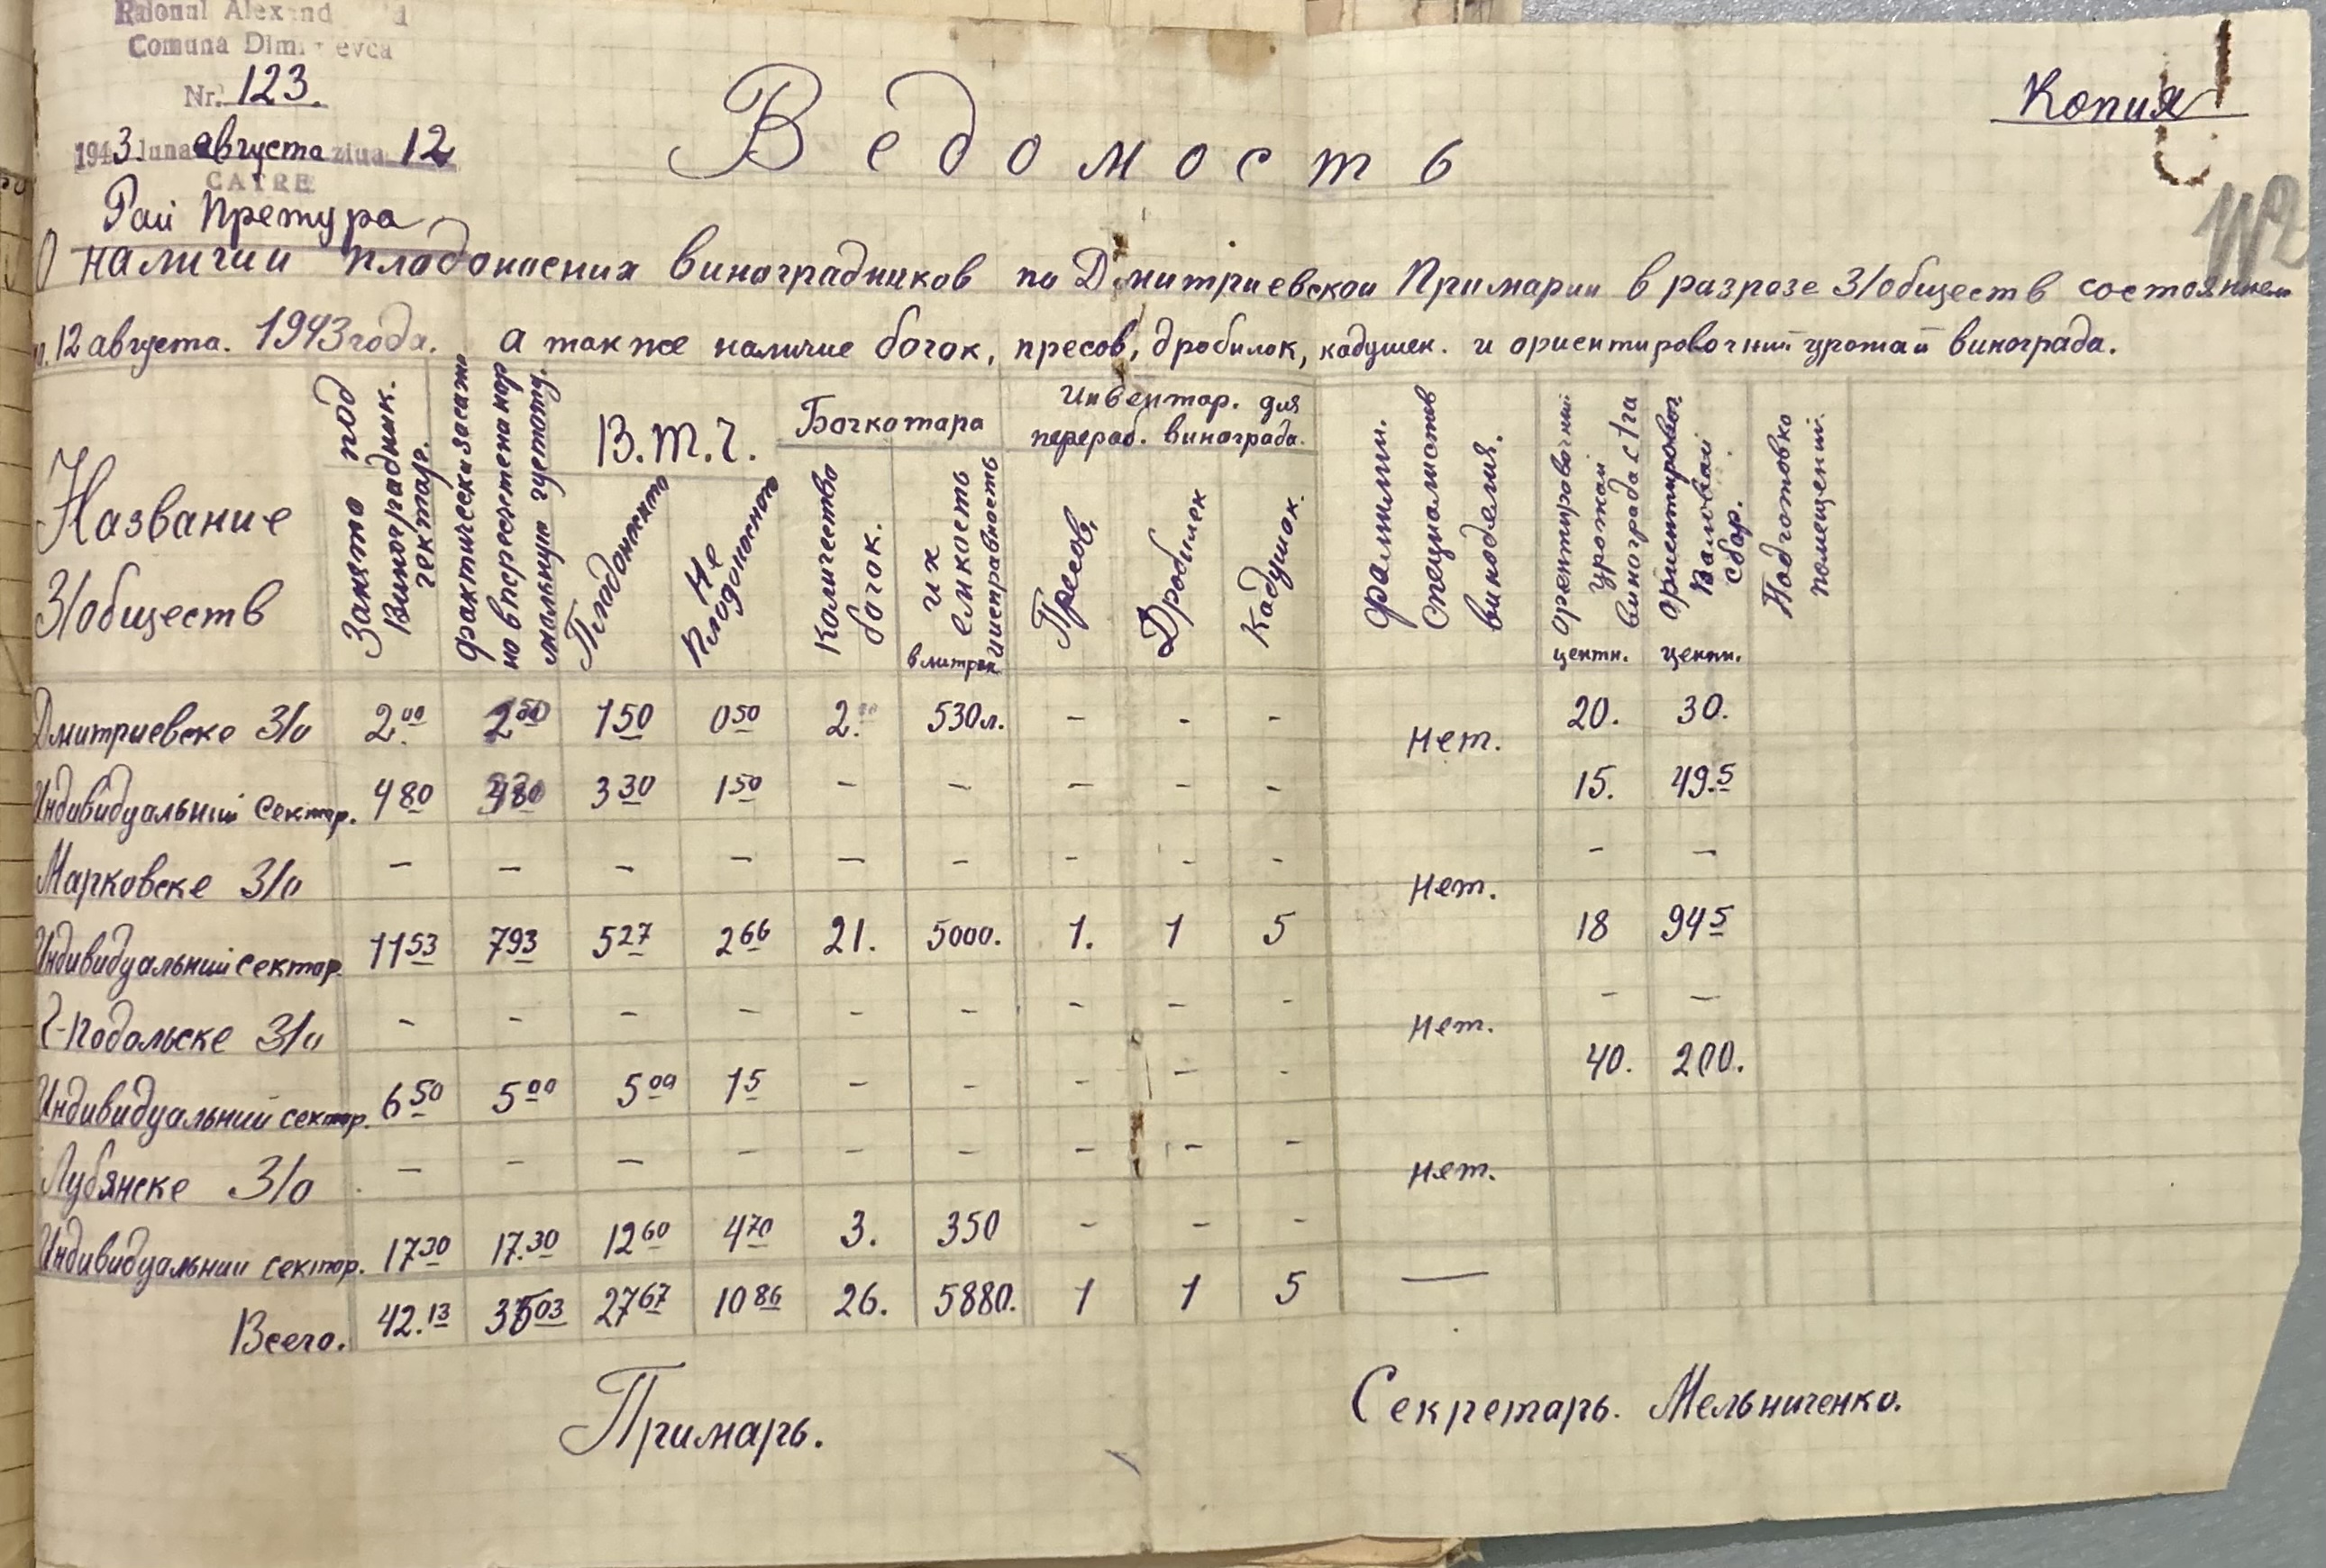 Raionul Alexand d
Comuna Dim evca
Nr. 123.
1943. luna августа ziua 12
CATRE
Рай Претура
Копия
112
Ведомость
О наличии плодонасения виноградников по Дмитриевской Примарии в разрезе З/обществ состоянием
н. 12 августа. 1943 года. а также наличие бочок, пресов, дробилок, кадушек. и ориентировочный урожай винограда.
Название З/обществ
Занято под Виноградник. гектар.
фактически засажено в пересчете на нормальную густоту.
В.т.ч.
Плодоножно
Не плодоножного
Бочкотара
Количество бочок.
их емкость исправность в литрах
Инвентар. для перераб. винограда.
Пресов,
Дробилек
Кадушок.
Фамилии. Специалистов виноделия.
Орентировочний урожай винограда с 1 га центн.
Ориентировоч. валовай сбор. центн.
Подготовка помещений.
Дмитриевске З/о 2.00 2 50 1 50 0 50 2. 530л. - - - нет. 20. 30.
Индивидуальний Сектор. 4 80 4 80 3 30 1 50 - - - - - 15. 49.5
Марковске З/о - - - - - - - - - нет. - -
Индивидуальний сектор. 11 53 7 93 5 27 2 66 21. 5000. 1. 1 5 18 94 5
Г-Подольске З/о - - - - - - - - - нет. - -
Индивидуальний сектор. 6 50 5 00 5 00 1 5 - - - - - 40. 200.
Лубянске З/о - - - - - - - - - нет.
Индивидуальнии сектор. 17 30 17.30 12 60 4 70 3. 350 - - -
Всего. 42.13 35 03 27 67 10 86 26. 5880. 1 1 5 —
Примарь.
Секретарь. Мельниченко.